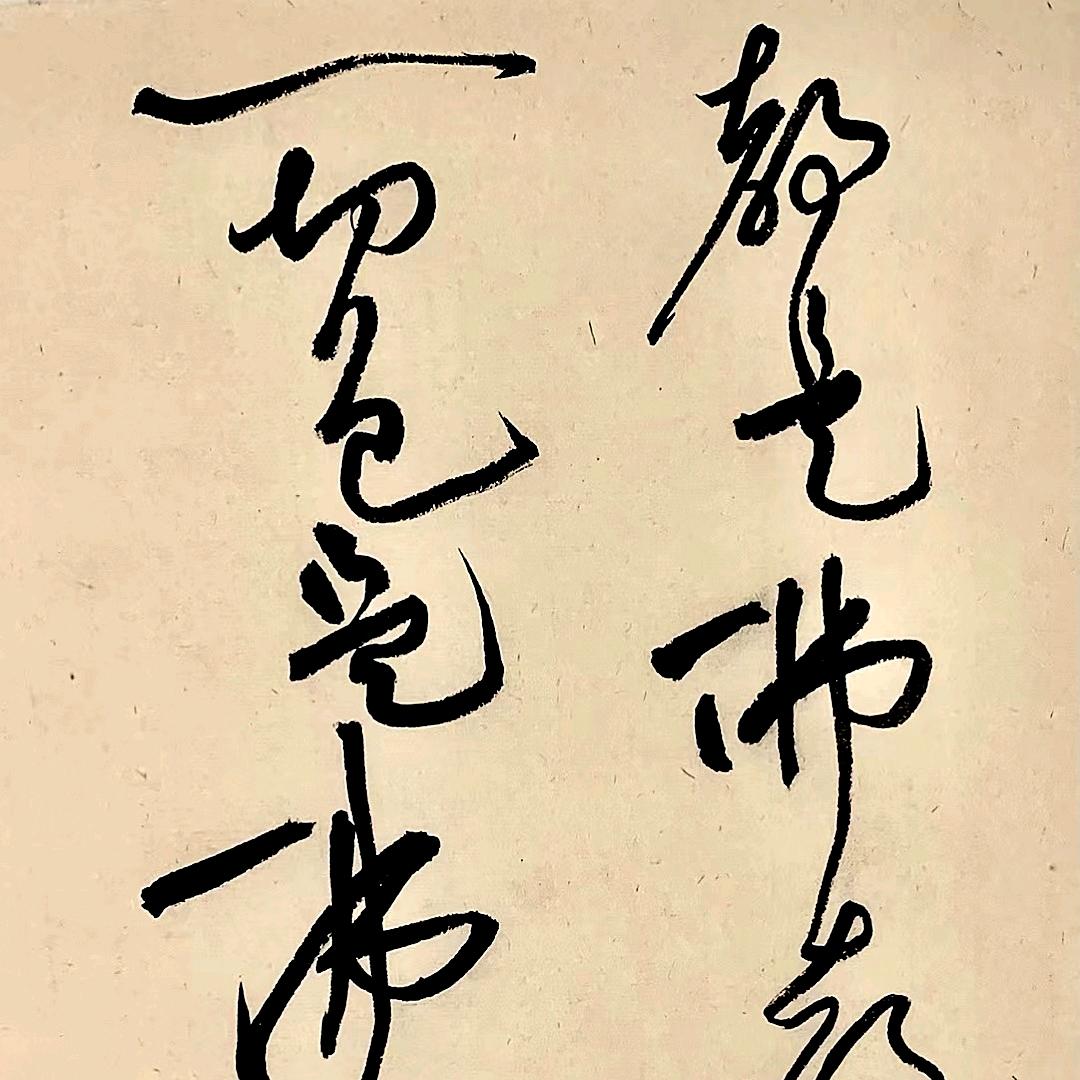 聲是佛聲
一切色是佛